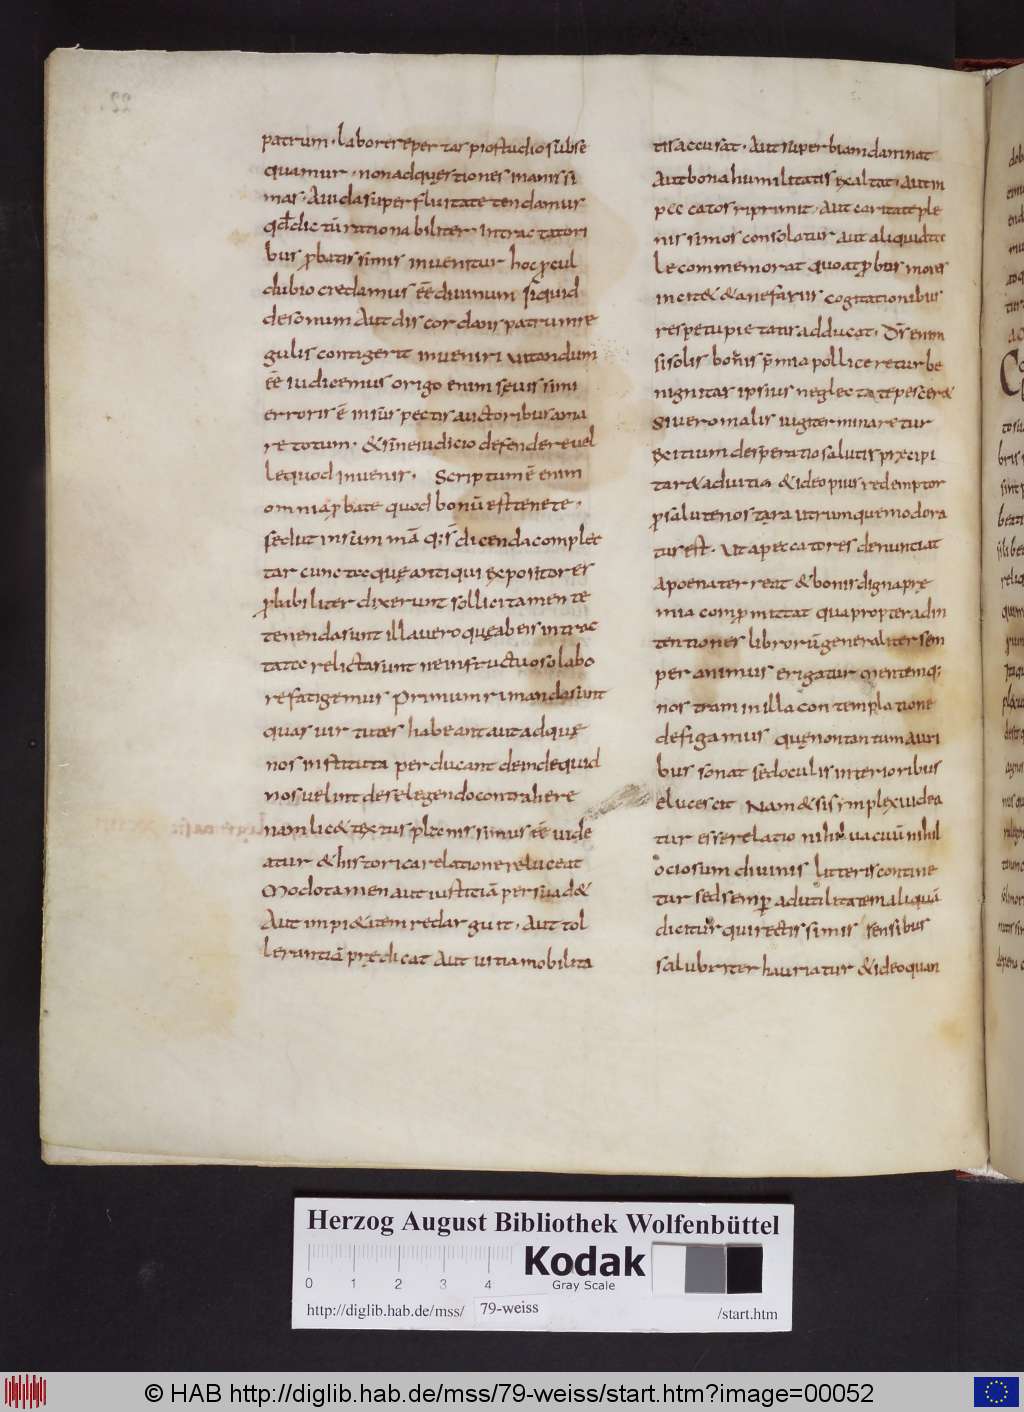 patrum · labores repertas pio studio subse
quamur · non ad quęstiones inanissi
mas · Auida superfluitate tendamur
qd̄ dictū rationabiliter · in tractatori
bus ꝓbatissimis inuenitur hoc ꝓcul
dubio credamus ēē diuinum Si quid
desonum Aut discordans patrum re
gulis contigerit inueniri uitandum
ēē iudicemus origo enim seuissimi
erroris ē in suspectis auctoribus ama
re totum · & sine iudicio defendere uel
le quod inuenis · Scriptum ē enim
omnia ꝓbate quod bonū est tenete ·
Sed ut in summā q; s̄ dicenda complec
tar cunctoque antiqui expositores
ꝓbabiliter dixerunt sollicita mente
tenenda sunt illa uero quę ab eis intrac
tato relicta sunt ne infructuoso labo
re fatigemus Primum rimanda sunt
quas uirtutes habeant aut ad quę
nos instituta perducant deinde quid
nos uelint de se legendo contrahere
nam lic& textus planissimus ēē uide
atur & historica relatione reluceat
Modo tamen aut iustitiā persuad&
Aut impi&atem redarguit · Aut tol
lerantiā prędicat Aut uitia mobilita
tis accusat · Aut superbiam damnat
Aut bona humilitatis exaltat · Aut in
peccatos riprimit · Aut caritate ple
nissimos consolatur Aut aliquid ta
le commemorat quo at ꝓbos mores
incit& & a nefariis cogitationibus
respetu pietatis adducat · Ds̄ enim
si solis bonis p̄mia pollicere tur be
nignitas ipsius neglecta tepescer&
Si uero malis iugiter minaretur
exitium desperatio salutis pręcipi
tar& ad uitia & ideo pius redemptor
ꝓ salute nostara utrumque modera
tur est · Ut a peccatores denuntiat
a poena terreat & bonis digna prę
mia compromittat quapropter ad in
tentiones librorū generaliter sem
per animus erigatur mentemq;
nostram in illa contemplatione
defigamus quę non tantum auri
bus sonat sed oculis interioribus
elucescit Nam & si simplex uidea
tur esse relatio nihil uacuū nihil
ociosum diuinis litteris contine
tur sed semp̄ ad utilitatem aliquā
dicitur qui rectissimis sensibus
salubriter hauriatur & ideo quan
Herzog August Bibliothek Wolfenbüttel
0 1 2 3 4
Kodak
Gray Scale
http://diglib.hab.de/mss/ 79-weiss /start.htm
© HAB http://diglib.hab.de/mss/79-weiss/start.htm?image=00052